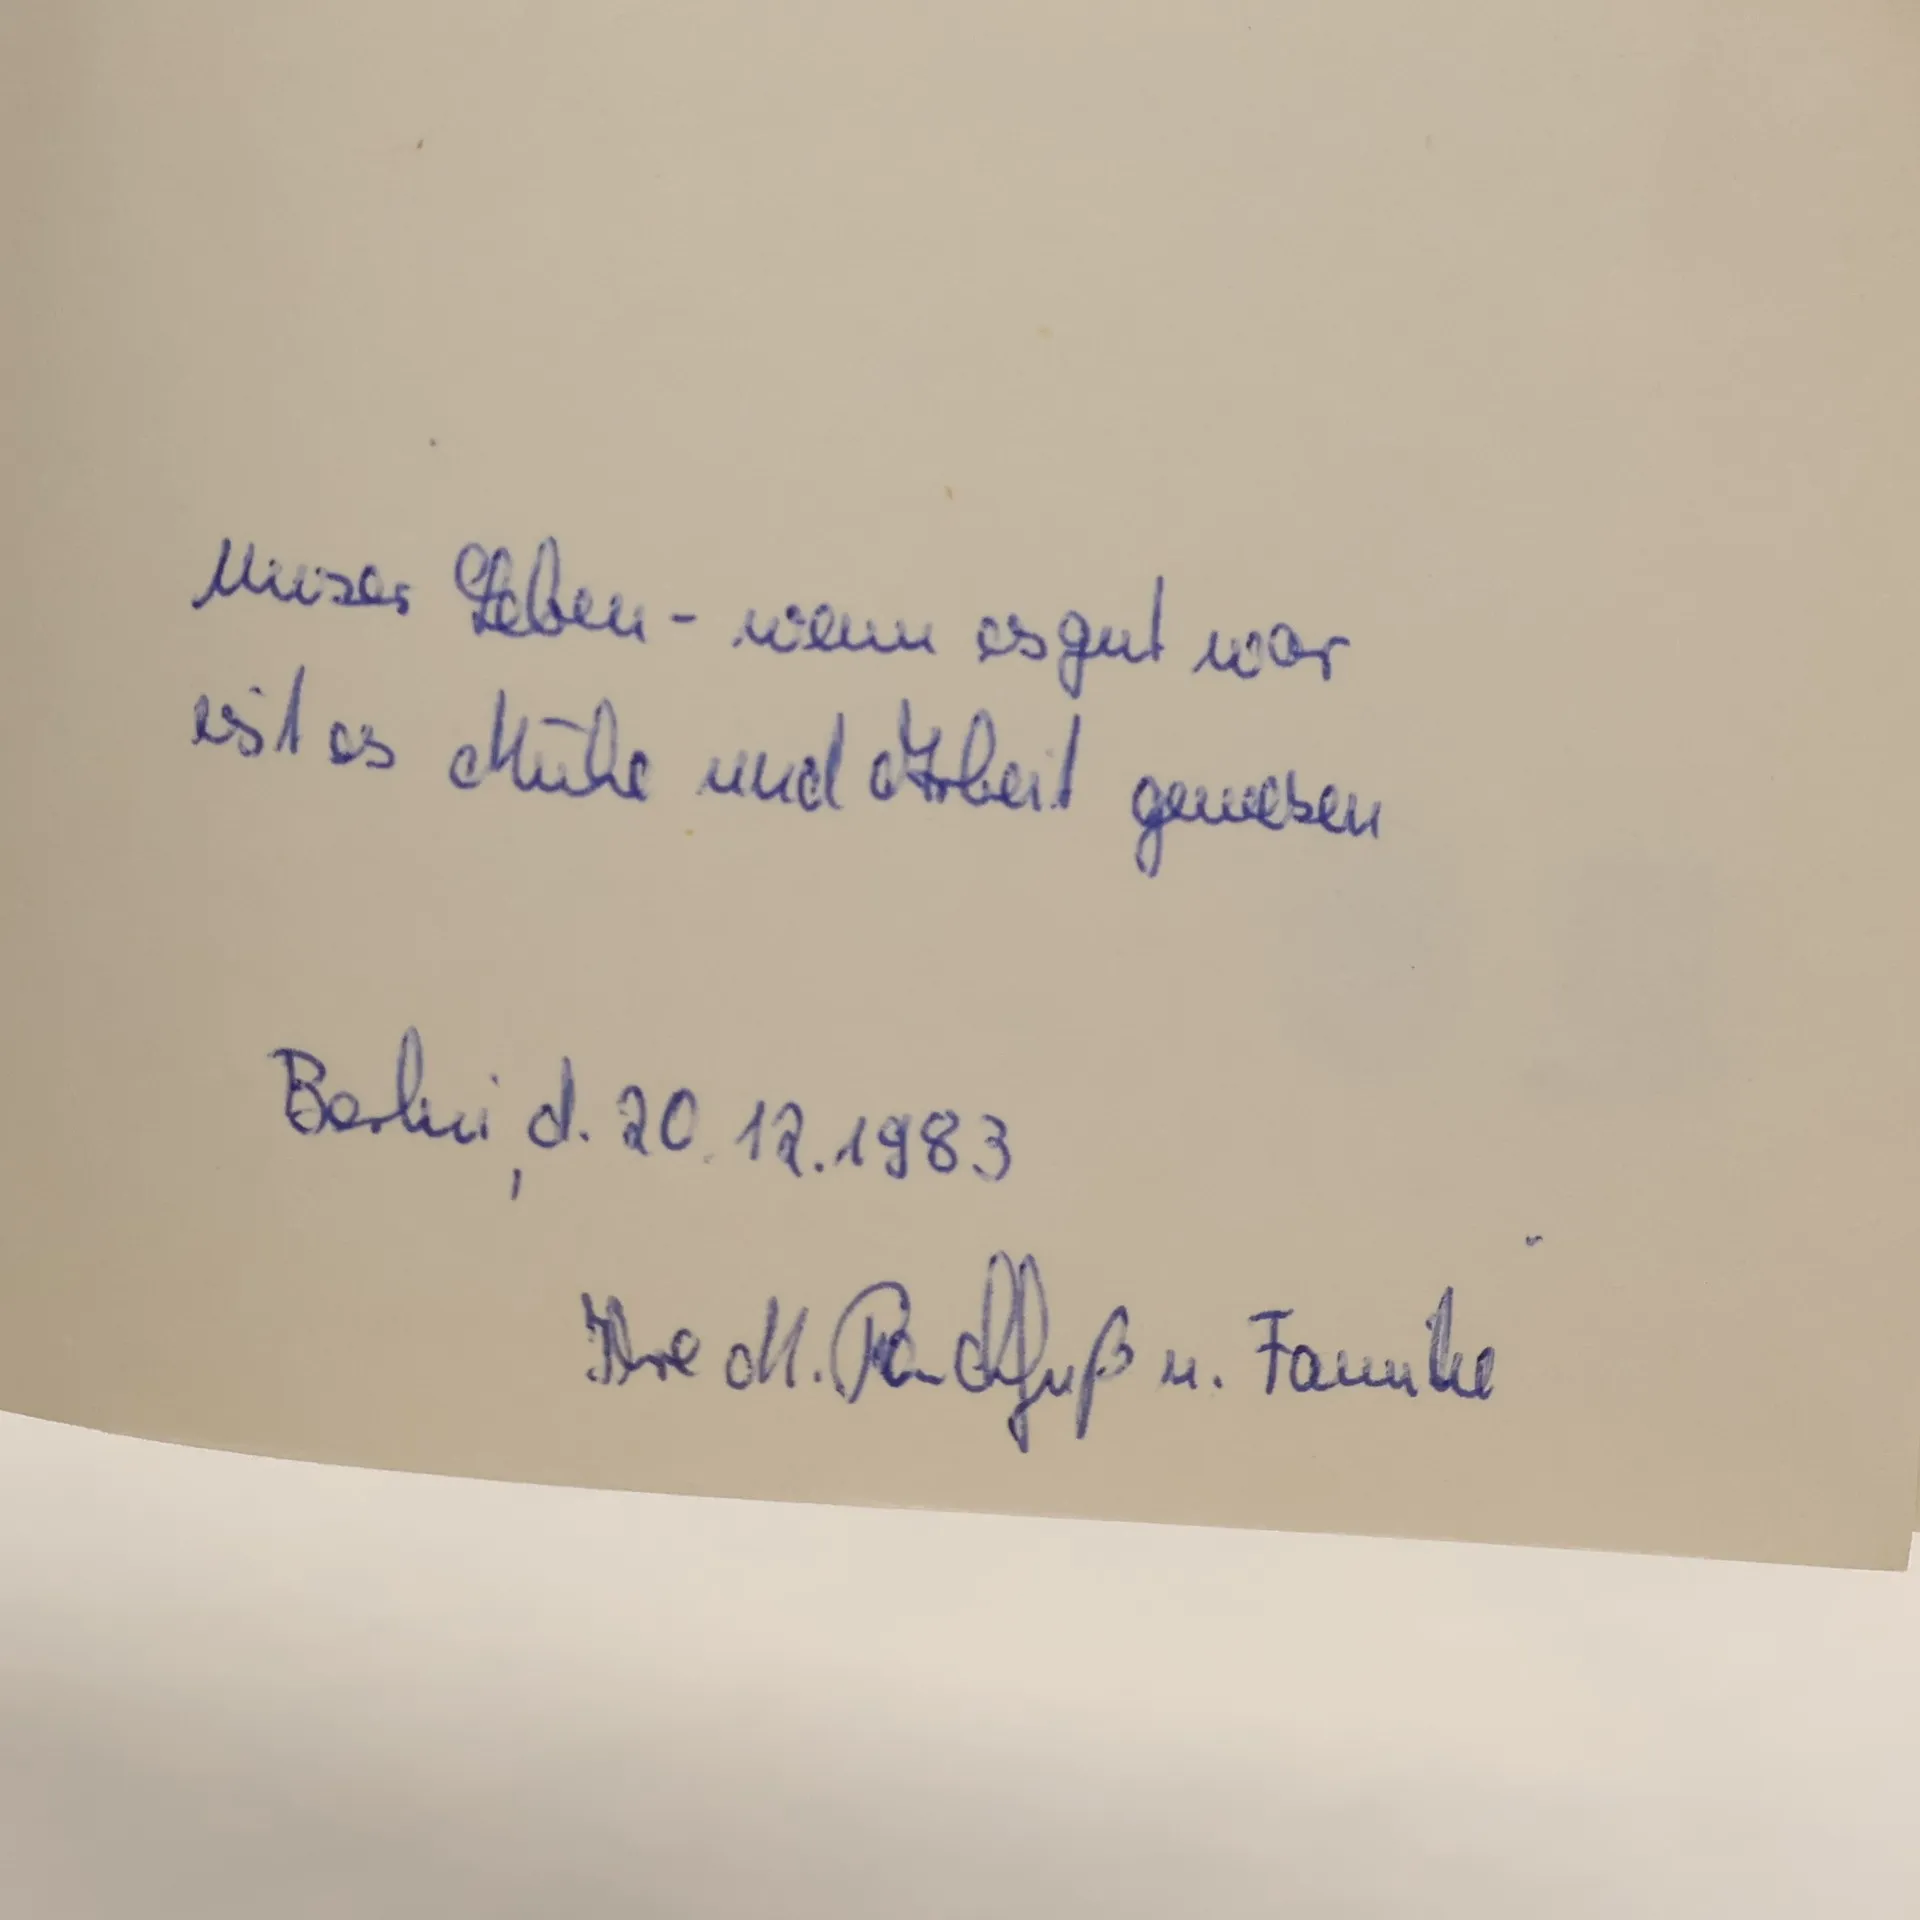 Unser Leben - wenn es gut war
ist es Mühe und Arbeit gewesen
Berlin, d. 20.12.1983
Ihre M. u. Familie